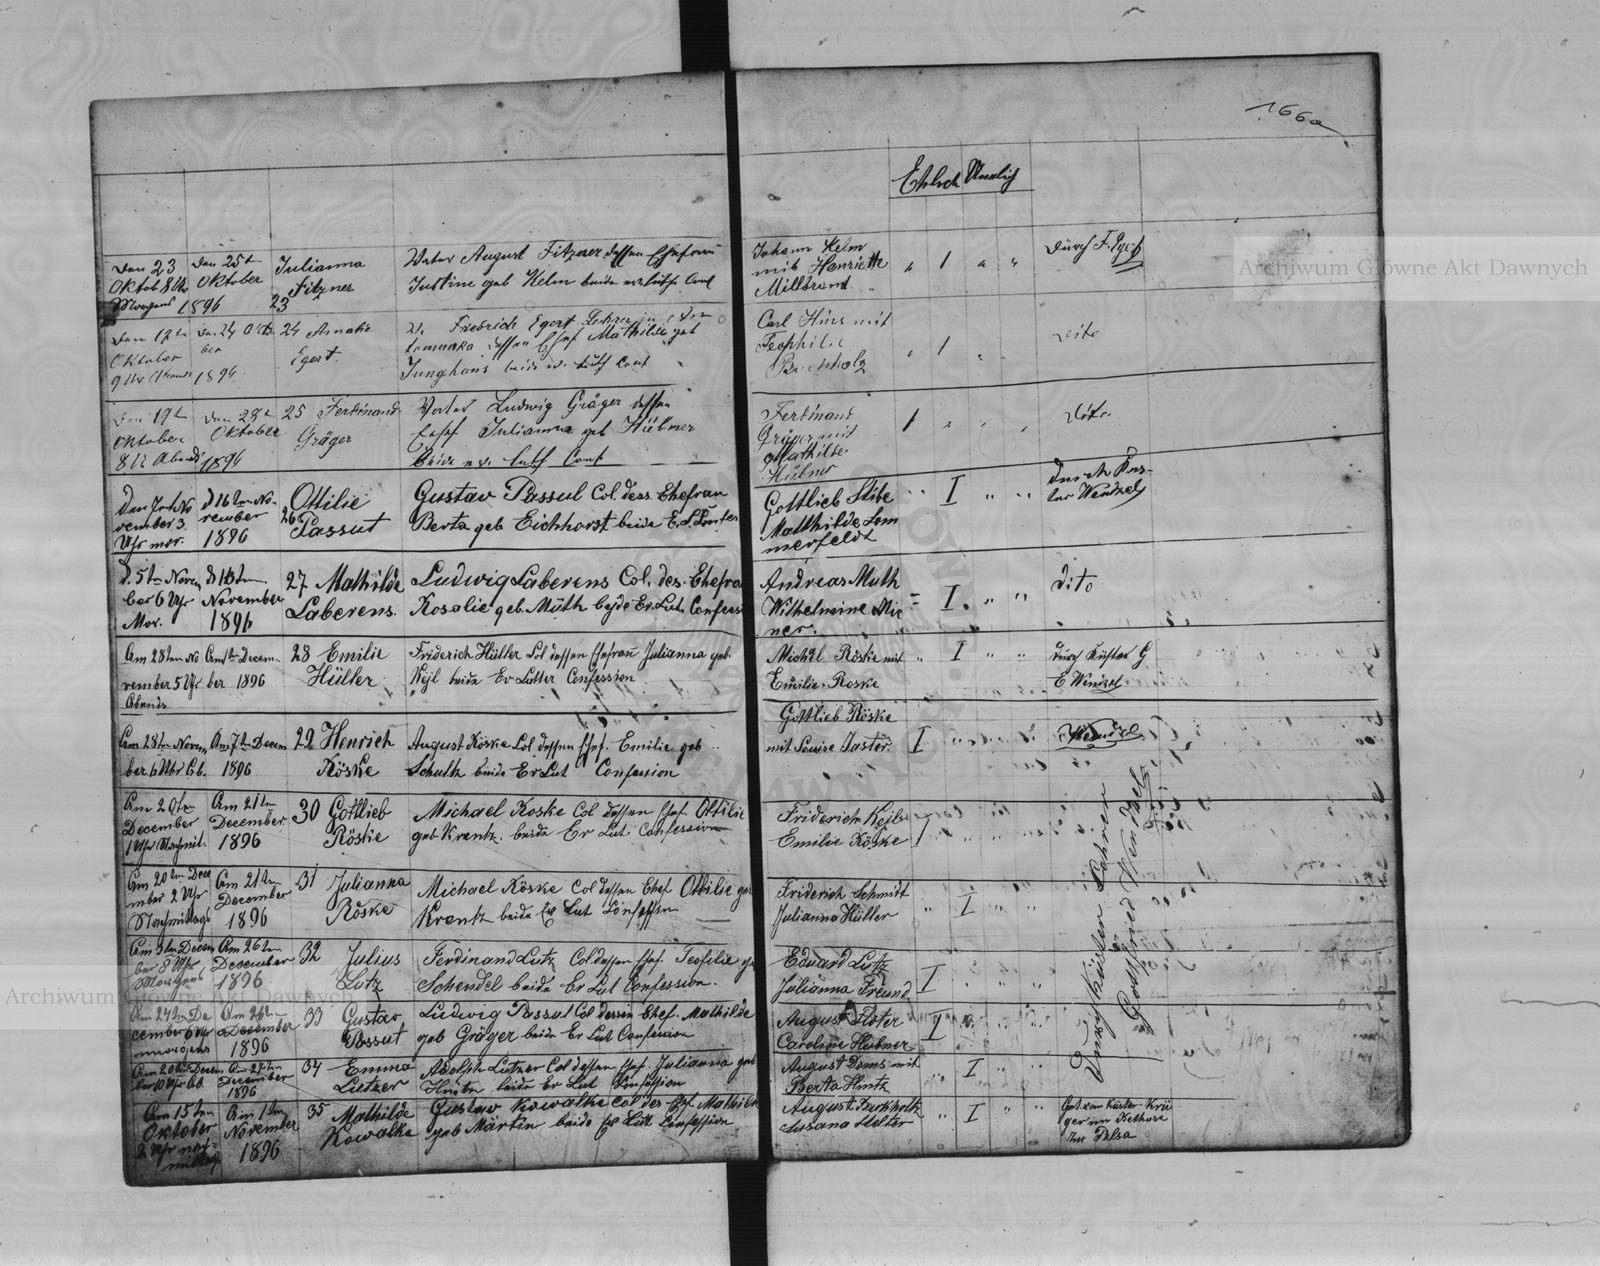 166a
Ehlich Unelich
Den 23
Oktob 8 Uhr
Morgens 1896
den 25t
Oktober
Julianna
Fitzner
23
Vater August Fitzner dessen Ehefrau
Justine geb Kelm beide ev. luth Conf
Johann Kelm
mit Henriette
Millbrand
" 1 " "
Durch F. Egert
Den 17t
Oktober
9 Uhr Abends
Den 24 Okto
ber
1896
24 Amalie
Egert
V. Friedrich Egert Lehrer in
dessen Ehef Mathilde geb
Junghans beide ev. luth Conf
Carl Hins mit
Teophilie
Buchholz
" 1 " "
dito
Den 19t
Oktober
8 Ur Abends
Den 28t
Oktober
1896
25 Ferdinand
Gräger
Vater Ludwig Gräger dessen
Ehef Julianna geb Hübner
beide ev. luth Conf
Ferdinand
Gräger mit
Mathilde
Hübner
1 " " "
dito
vember 3
Uhr mor.
d 16ten No-
vember
1896
Ottilie
26 Passut
Gustav Passul Col. dess. Ehefrau
Berta geb Eichhorst beide
Gottlieb Stibe
Matthilde Som
merfeldt
" I " "
durch Küs-
ter Wendzel
d. 5ten Novem
ber 6 Uhr
Mor.
November
1896
27 Mathilde
Laberens.
Ludwig Laberens Col. des. Ehefra
Rosalie geb. Muth beide Ev. Lut. Confess
Andreas Muth
Wilhelmine Mir
ner.
" I " "
dito
Am 28ten No
vember 5 Uhr
Abends
Decem-
ber 1896
28 Emilie
Hüller
Friderich Hüller Col dessen Ehefrau Julianna geb.
Kejl beide Ev Lutter Confession
Michäl Röske mit
Emilie Roske
" I " "
durch Küster G
E Wentzel
Am 28ten Novem
ber 6 Uhr Ab.
Am 7ten Decem
1896
29 Henrich
Röske
August Röske Col dessen Ehef. Emilie geb
Schultz beide Ev Lut Confession
Gottlieb Röske
mit Louise Jaster
I " " "
Wendzel
Am 20ten
December
1 Uhr Nachmit.
Am 21ten
December
1896
30 Gottlieb
Röske
Michael Roske Col dessen Ehef. Ottilie
geb Krentz. beide Ev Lut. Confession
Friderich Kejls
Emilie Röske
I " " "
Am 20ten Dece
mber 2 Uhr
Nachmittags
Am 21ten
December
1896
31 Julianna
Röske
Michael Röske Col dessen Ehef Ottilie geb
Krentz beide Ev Lut Confession
Friderich Schmidt
Julianna Hütler
" I " "
Durch Küster
Gottfried Wendzel
ber 8 Uhr
Morgens
Am 26ten
December
1896
32 Julius
Lutz
Ferdinand Lutz Col dessen Ehef. Teofelie ge
Schendel beide Ev Lut Confession.
Eduard Lutz
Julianna Freund
I " " "
Am 24ten De
cember 6 Uhr
morgens
Am 26ten
December
1896
33 Gustav
Possut
Ludwig Possul Col dessen Ehef. Mathilde
geb Gräger beide Ev Lut Confession
Caroline Hubner
I " " "
Am 20ten Decem
ber 10 Uhr Ab.
Am 27ten
December
1896
34 Emma
Lutzer
Adolph Lutzer Col dessen Ehef Julianna geb
Hintz beide Ev Lut Confession
August Doms mit
Berta Hintz
" I " "
Am 15ten
Oktober
2 Uhr nach
mittag
Am 1ten
November
1896
35 Mathilde
Kowalke
Gustav Kowalke Col des Ehf Mathilde
geb Martin beide Ev Lutt Confession
August Buchholtz
Susana Stelter
" I " "
Get. vom Küster Krü
ger im Bethause
zur Pelsa
Archiwum Główne Akt Dawnych
Archiwum Główne Akt Dawnych